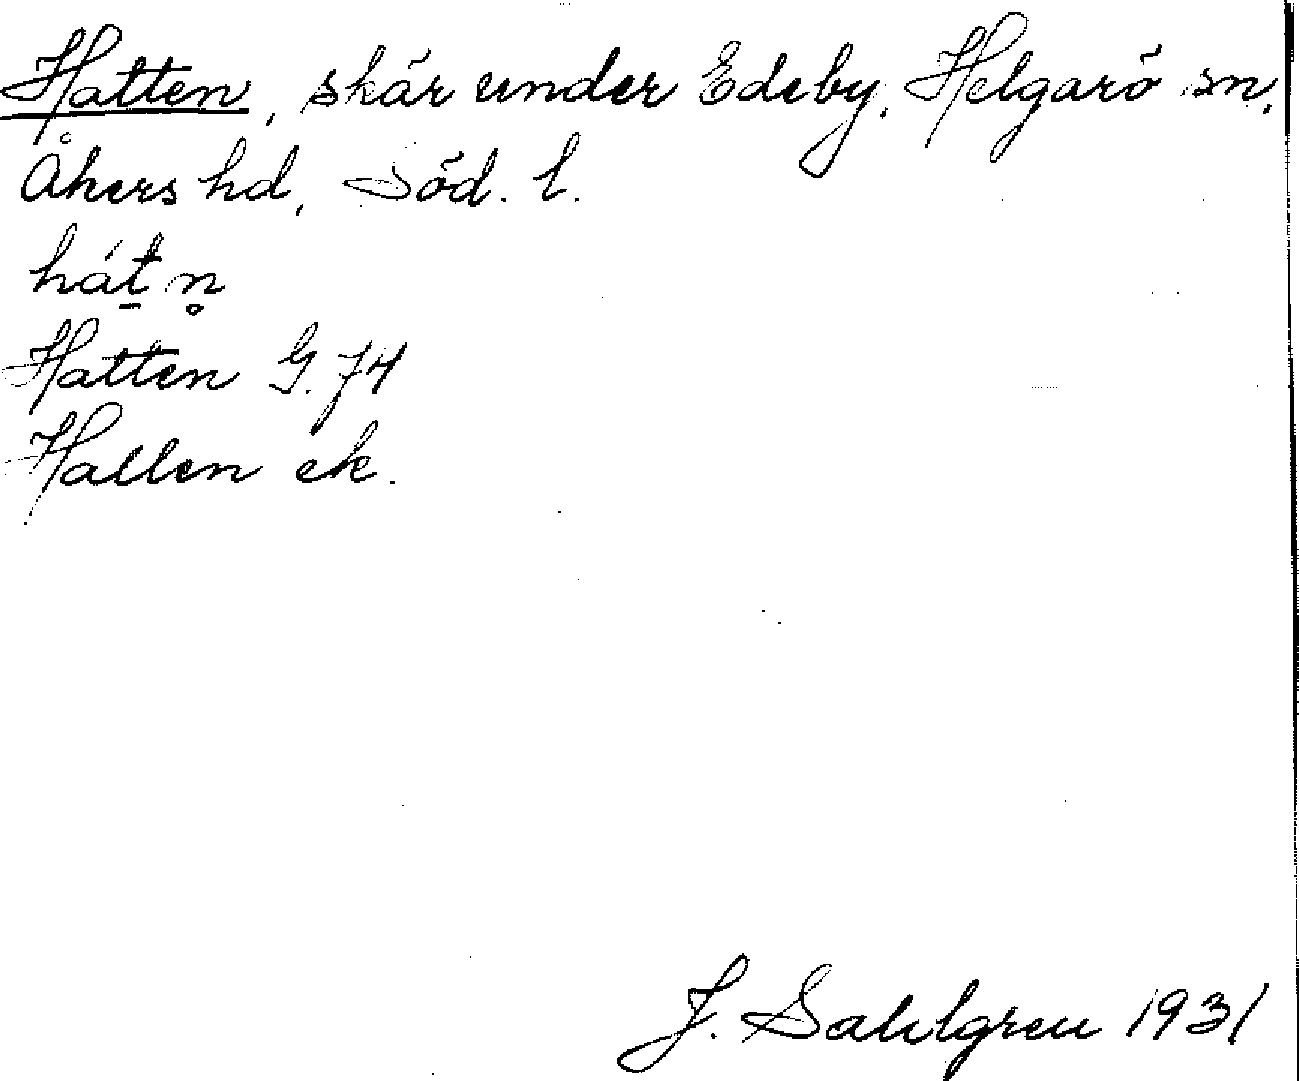 Hatten, skär under Edeby, Helgarö sn,
Åkers hd, Söd. l.
hát̠ n̥
Hatten G. 74
Hallen ek.
J. Sahlgren 1931